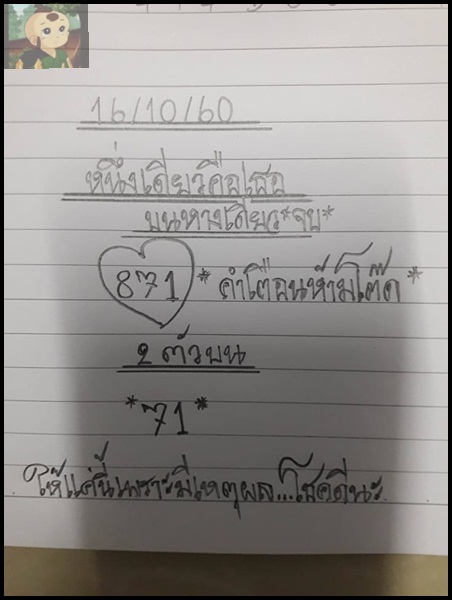 16/10/60
หนึ่งเดียวคือเธอ
บนทางเดียว*จบ*
871 *คำเตือนห้ามโต๊ด*
2 ตัวบน
*71*
ให้แค่นี้เพราะมีเหตุผล...โชคดีนะ